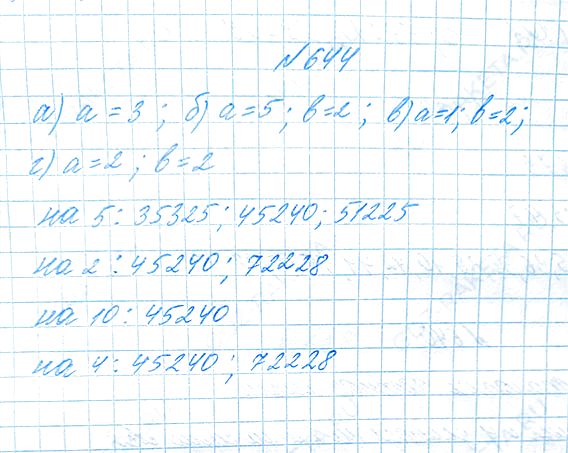 №644
а) a = 3 ; б) a = 5 ; b = 2 ; в) a = 1 ; b = 2 ;
г) a = 2 ; b = 2
на 5 : 35325 ; 45240 ; 51225
на 2 : 45240 ; 72228
на 10 : 45240
на 4 : 45240 ; 72228